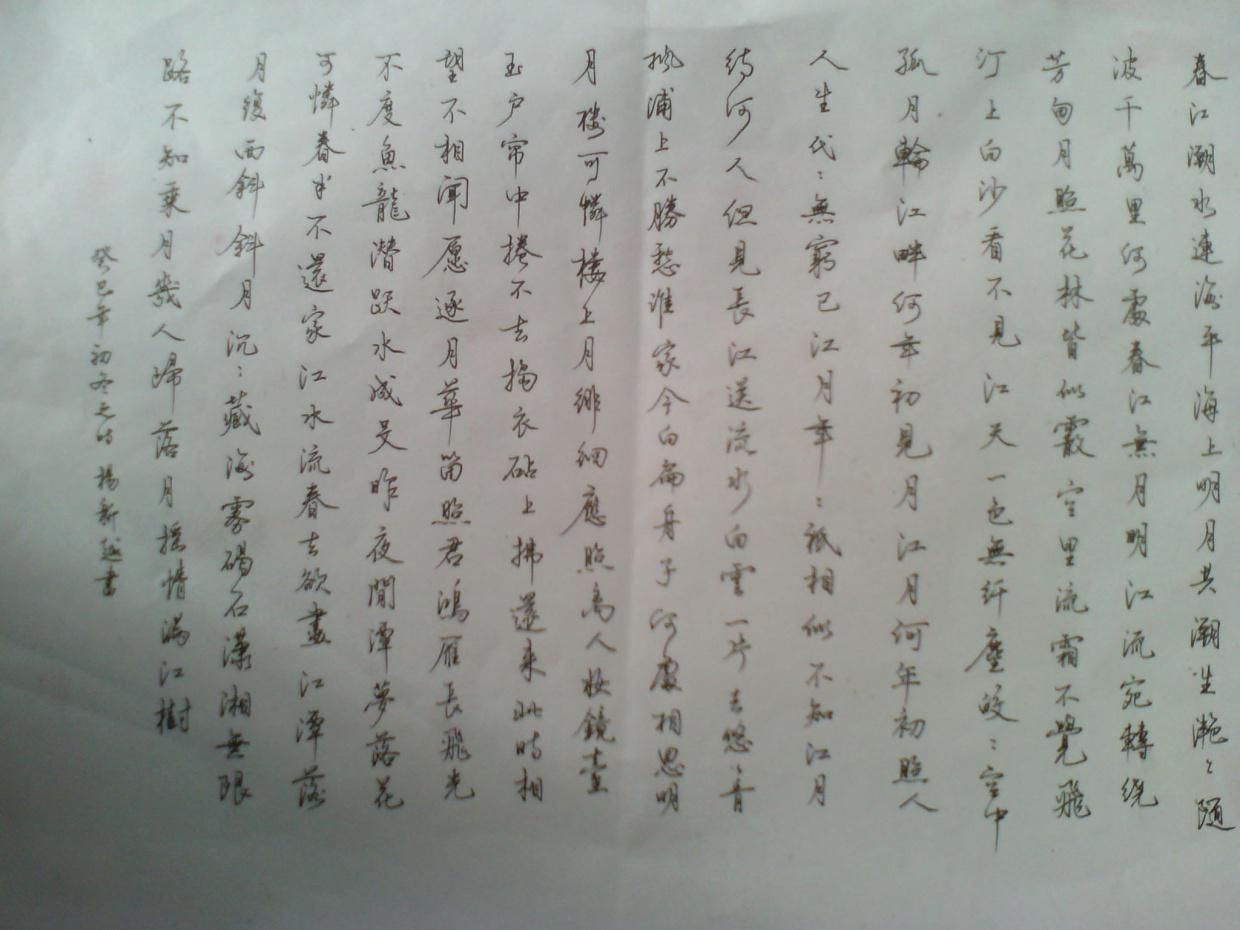 春江潮水連海平海上明月共潮生滟〻随
波千萬里何處春江無月明江流宛轉绕
芳甸月照花林皆似霰空里流霜不覺飛
汀上白沙看不見江天一色無纤塵皎〻空中
孤月輪江畔何年初見月江月何年初照人
人生代〻無窮已江月年〻祇相似不知江月
待何人但見長江送流水白雲一片去悠〻青
枫浦上不勝愁谁家今白扁舟子何處相思明
月樓可憐樓上月徘徊應照离人妆鏡臺
玉户帘中捲不去擣衣砧上拂還来此時相
望不相闻愿逐月華笛照君鴻雁長飛光
不度魚龍潜跃水成文昨夜閒潭夢落花
可憐春半不還家江水流春去欲盡江潭落
月復西斜斜月沉〻藏海雾碣石瀟湘無限
路不知乗月幾人歸落月摇情满江樹
癸巳年初冬之时楊新越書